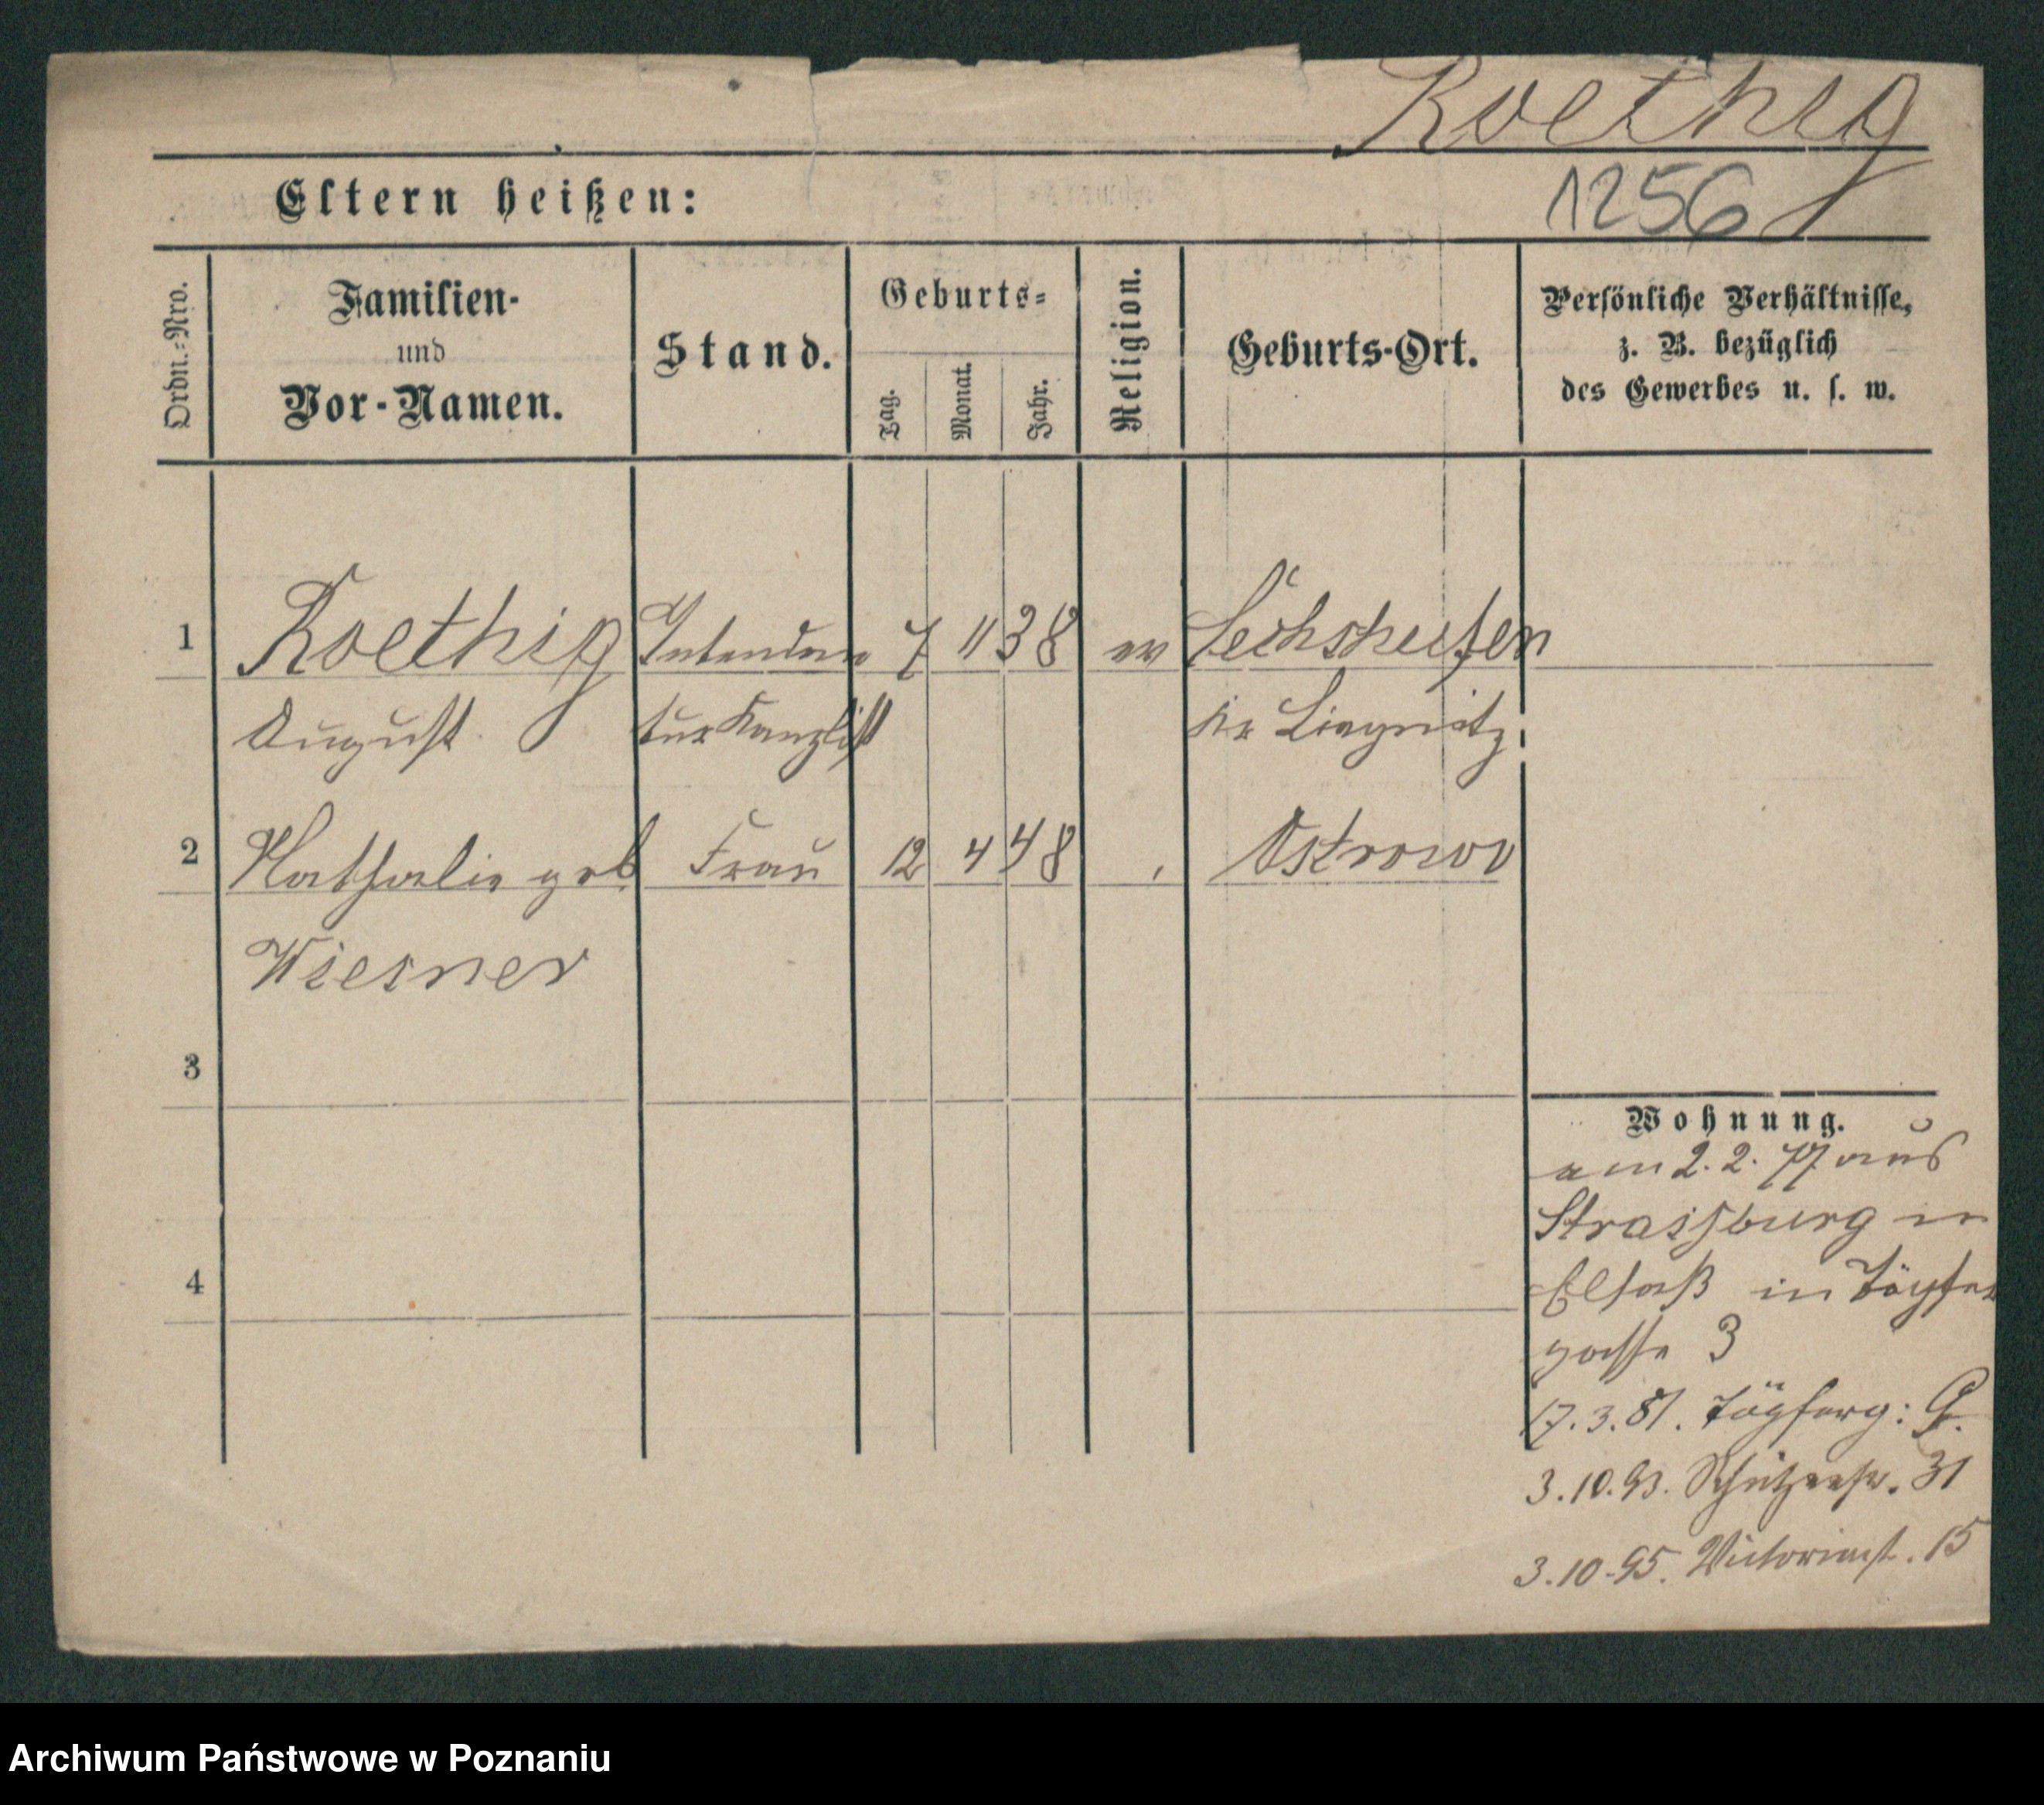 Roethig
Eltern heißen:
1256
Ordn.-Nro.
Familien-
und
Vor-Namen.
Stand.
Geburts-
Tag.
Monat.
Jahr.
Religion.
Geburts-Ort.
Persönliche Verhältnisse,
z. B. bezüglich
des Gewerbes u. s. w.
1 Roethig Intendan 7 11 38 ev Sechshufen
August tur Kanzlist Kr Liegnitz
2 Nathalie geb Frau 12 4 48 Ostrowo
Wiesner
3
4
Wohnung.
am 2. 2. 77 aus
Strassburg in
Elsaß in Töpfer
gasse 3
17. 3. 81. Töpferg:
3. 10. 93. Schützenstr. 31
3. 10. 95. Victoriast. 15
Archiwum Państwowe w Poznaniu